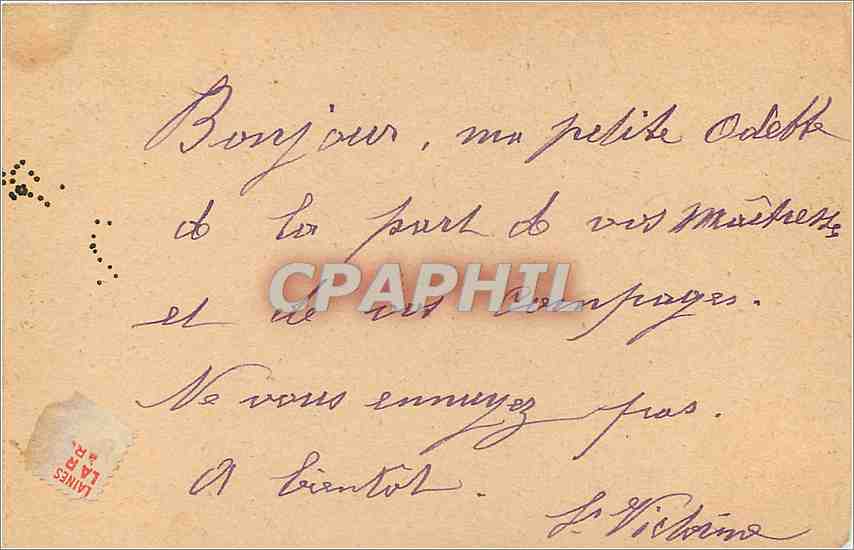 Bonjour, ma petite Odette
de la part de vos Maîtresses
et de vos compages.
Ne vous ennuyez pas.
A bientôt.
Sr Victorine
CPAPHIL
LAINES
LAR